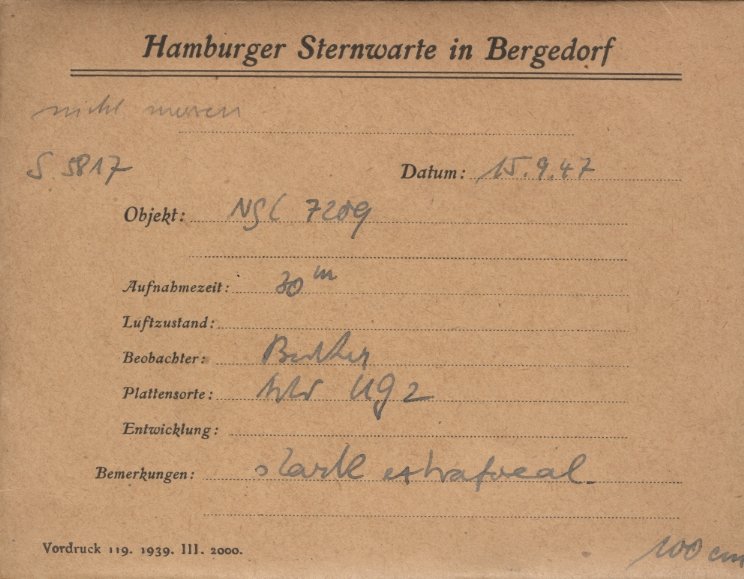 Hamburger Sternwarte in Bergedorf
nicht messen
S 5817
Datum: 15.9.47
Objekt: NGC 7209
Aufnahmezeit: 30 m
Luftzustand:
Beobachter:
Plattensorte: UG2
Entwicklung:
Bemerkungen: stark extrafocal
Vordruck 119. 1939. III. 2000.
100 cm